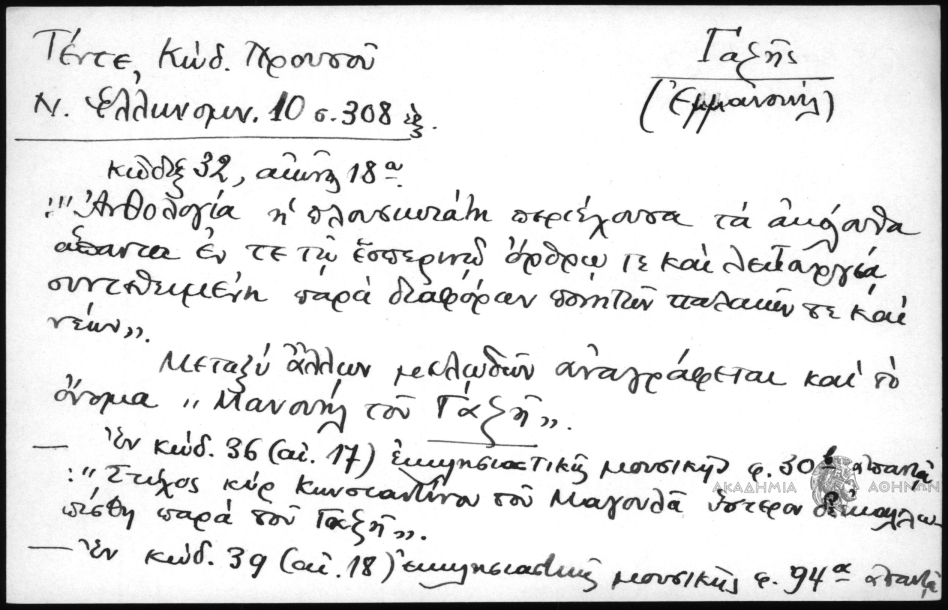 Τέντε, Κώδ. Προυσοῦ
Γαζῆς
(Ἐμμανουήλ)
Ν. Ἑλληνομν. 10 σ. 308 ἑξ.
κῶδιξ 32, αἰώνος 18ᾳ.
:"Ἀνθολογία ἡ πλουσιωτάτη περιέχουσα τὰ ἀκόλουθα
ἅπαντα ἐν τε τῷ ἑσπερινῷ ὄρθρῳ τε καὶ λειτουργίᾳ
συντεθειμένη παρὰ διαφόρων ποιητῶν παλαιῶν τε καὶ
νέων".
Μεταξὺ ἄλλων μελωδῶν ἀναγράφεται καὶ τὸ
ὄνομα "Μανουὴλ τοῦ Γαζῆ".
— Ἐν κώδ. 36 (αἰ. 17) ἐκκλησιαστικῆς μουσικῆς φ. 30β ἀπαντᾷ
:"Στίχος κὺρ Κωνσταντίνου τοῦ Μαγουλᾶ ὕστερον δὲ
παρὰ τοῦ Γαζῆ".
— Ἐν κώδ. 39 (αἰ. 18) ἐκκλησιαστικῆς μουσικῆς φ. 94α ἀπαντᾷ
ΑΚΑΔΗΜΙΑ ΑΘΗΝΩΝ